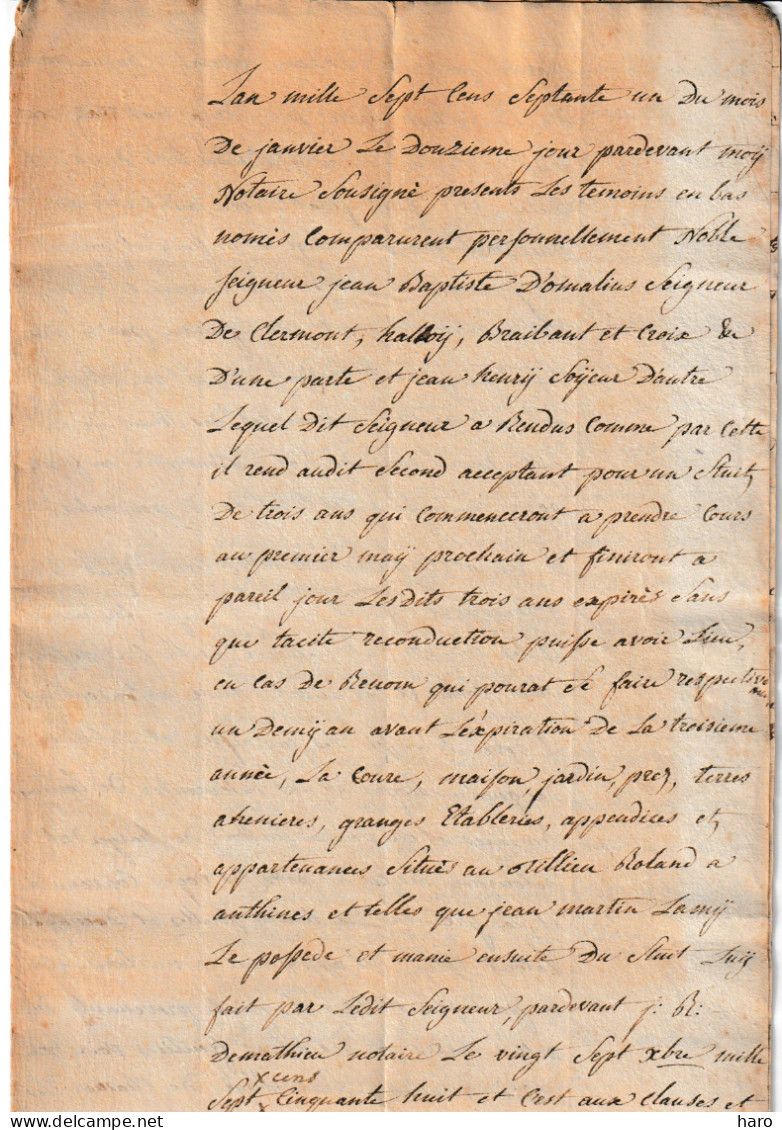 Lan mille Sept Cens Septante un Du mois
De janvier Le Douzieme jour pardevant moÿ
Notaire Sousigné presents Les temoins en bas
només Comparurent personnellement Noble
Seigneur jean Baptiste D'omalius Seigneur
De Clermont, halloÿ, Braibant et Croix &c
D'une parte et jean henrÿ Soÿeur D'autre
Lequel Dit Seigneur a Rendus Comme par Cette
il rend audit Second acceptant pour un Stuit,
De trois ans qui Commenceront a prendre Cours
au premier maÿ prochain et finiront a
pareil jour Lesdits trois ans expirés Sans
que tacite reconduction puisse avoir Lieu,
en Cas De Renom qui pourat Se faire respectivement
un Demÿ an avant L'expiration De La troisieme
année, La Coure, maison, jardin, prez, terres
ahenieres, granges Etableries, appendices et,
appartenances Situés au Millieu Roland a
anthines et telles que jean martin Lamÿ
Le possede et manie ensuite Du Stuit Luÿ
fait par Ledit Seigneur, pardevant j: B:
Demathieu notaire Le vingt Sept xbre mille
x cens
Sept x Cinquante huit et C'est aux Clauses et
haro